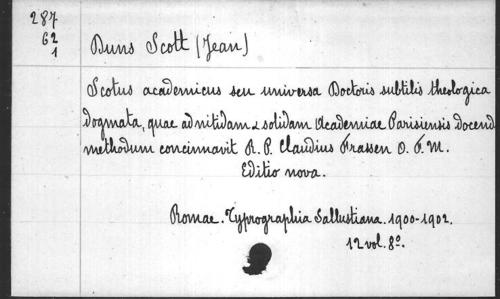 287
62
1
Duns Scott (Jean)
Scotus academicus seu universa Doctoris subtilis theologica
dogmata, quae ad nitidam & solidam Academiae Parisiensis docend
methodum concinnavit R. P. Claudius Frassen O. F. M.
Editio nova.
Romae. Typrographia Sallustiana. 1900-1902.
12 vol. 8º.